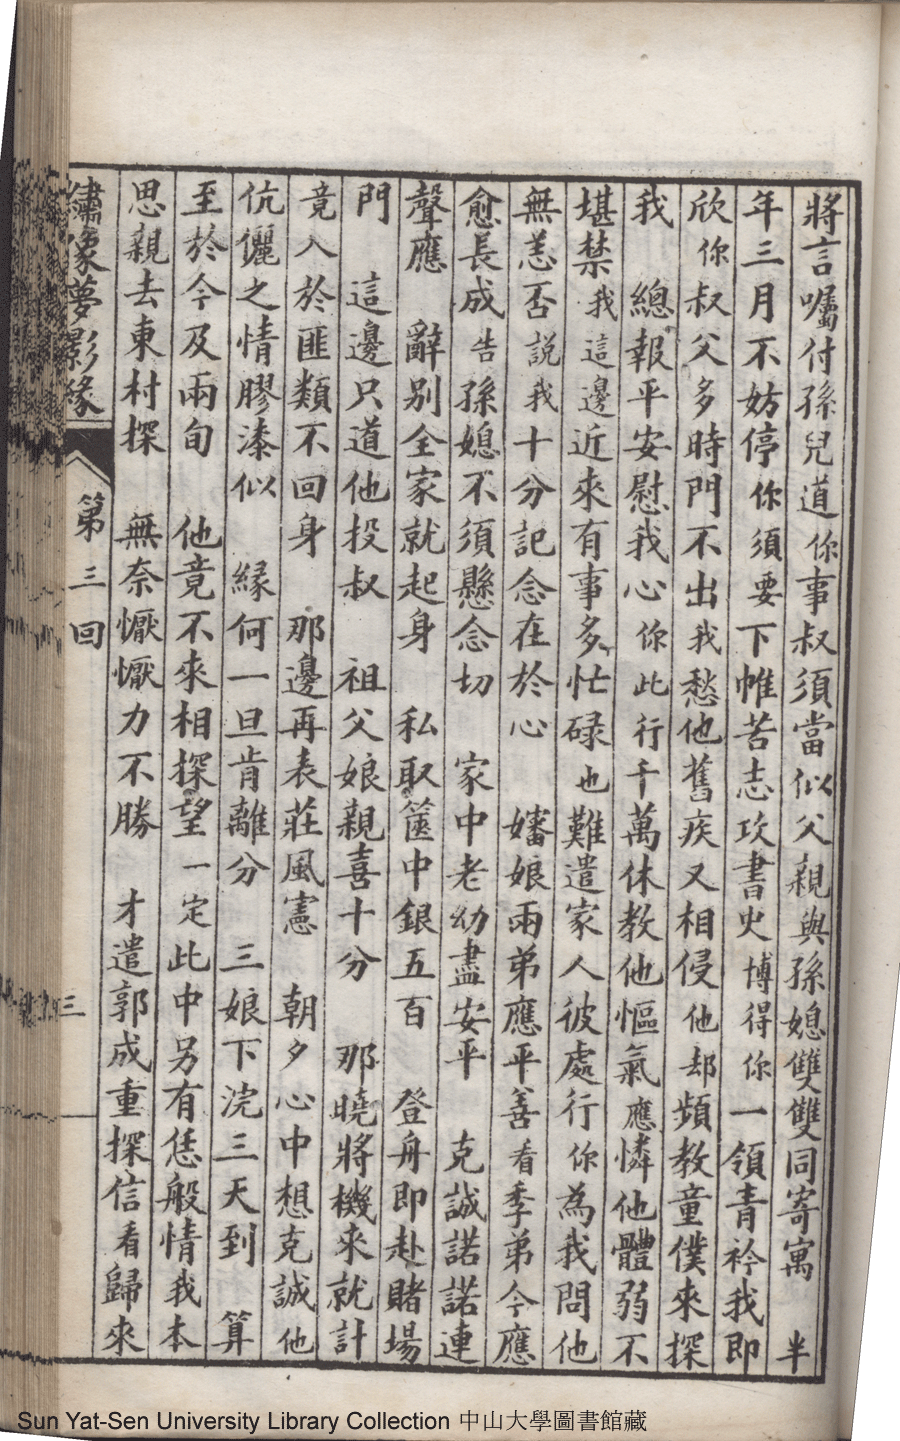 將言囑付孫兒道你事叔須當似父親與孫媳雙雙同寄寓　半
年三月不妨停你須要下帷苦志攻書史博得你一領青衿我即
欣你叔父多時門不出我愁他舊疾又相侵他却頻教童僕來探
我　總報平安慰我心你此行千萬休教他慪氣應憐他體弱不
堪禁我這邊近來有事多忙碌也難遣家人彼處行你為我問他
無恙否說我十分記念在於心　嬸娘兩弟應平善看季弟今應
愈長成告孫媳不須懸念切　家中老幼盡安平　克誠諾諾連
聲應　辭別全家就起身　私取篋中銀五百　登舟即赴賭場
門　這邊只道他投叔　祖父娘親喜十分　那曉將機來就計
竟入於匪類不回身　那邊再表莊風憲　朝夕心中想克誠他
伉儷之情膠漆似　緣何一旦肯離分　三娘下浣三天到　算
至於今及兩旬　他竟不來相探望一定此中另有恁般情我本
思親去東村探　無奈懨懨力不勝　才遣郭成重探信看歸來
繡像夢影緣　第三回　三
Sun Yat-Sen University Library Collection 中山大學圖書館藏